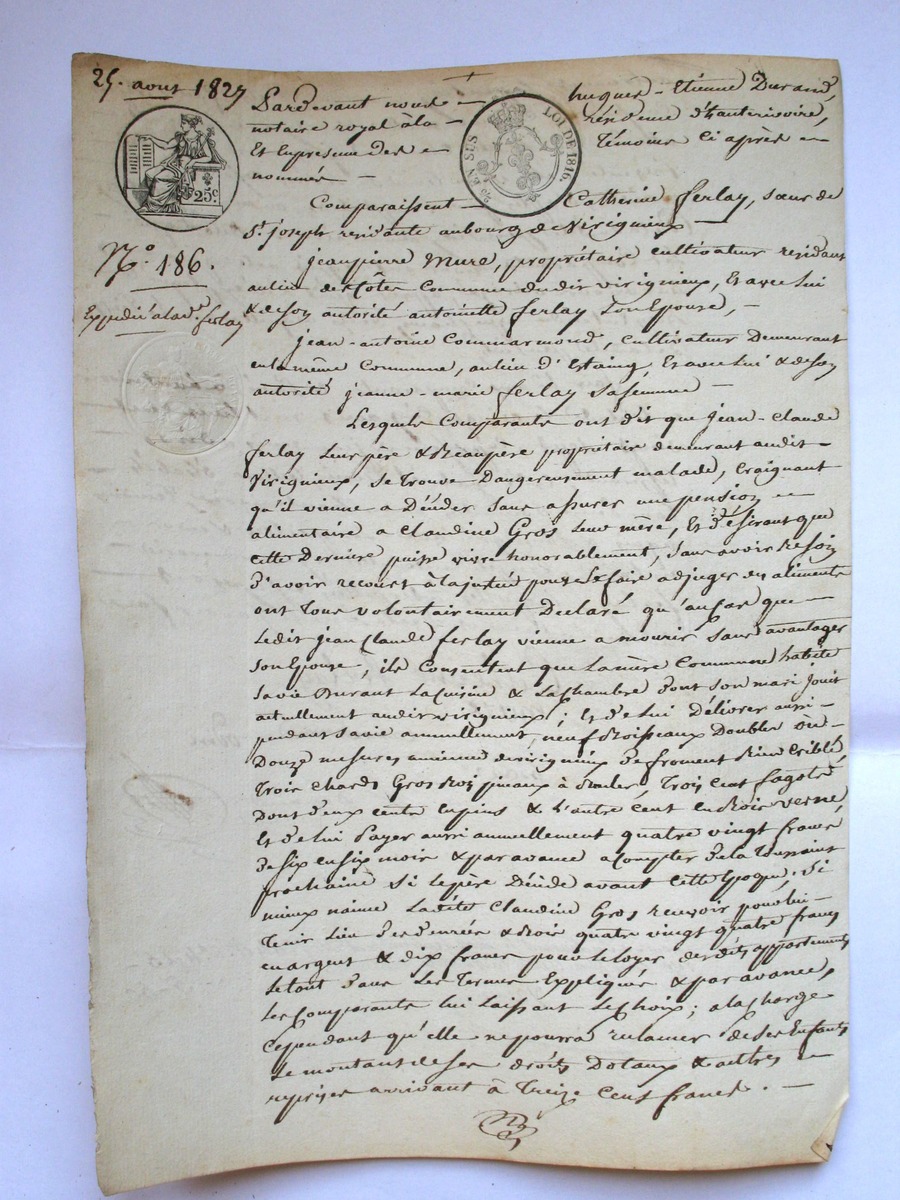 25. aoust 1827
Pardevant nous — hugues - Etienne Durand,
notaire royal à la — résidence d'hauterivoire,
Et en presence des — Témoins ci après —
nommés —
25c.
2e EN SUS
LOI DE 1816.
Comparaissent — Catherine ferlay, sœur de
St. joseph residante au bourg de Virignieux —
N°. 186.
jean pierre Mure, propriétaire cultivateur residant
au lieu des Côtes Commune dudit virignieux, Et avec lui
Expedié a la de. ferlay
& de son autorité antoinette ferlay son Epouse, —
jean-antoine Commarmond, Cultivateur Demeurant
en la même Commune, au lieu d'Estaing, Et avec lui & de son
autorité jeanne-marie ferlay sa femme —
Lesquels Comparants ont dit que jean-Claude
ferlay leur père & Beaupère propriétaire demeurant audit —
Virignieux, se trouve Dangereusement malade, Craignant
qu'il vienne a Décéder sans assurer une pension —
alimentaire a Claudine Gros leur mère, Et désirant que
Cette Dernière puisse vivre honorablement, sans avoir Besoin
d'avoir recours à la justice pour se faire adjuger des aliments
ont Tous volontairement Declaré qu'au cas que —
Ledit jean Claude ferlay vienne a mourir sans avantager
son Epouse, ils Consentent que la mère Commune habite
sa vie Durant la Cuisine & la Chambre dont son mari jouit
actuellement audit virignieux; Et de lui Délivrer aussi —
pendant sa vie annuellement, neuf Boisseaux Doubles ou —
Douze mesures ancienne de virignieux de froment Bien Criblé
Trois Chards Gros Bois pinaux à Bruler, Trois Cent fagots
Dont deux cents en pins & l'autre Cent en Bois verne,
Et de lui Payer aussi annuellement quatre vingt francs
de six en six mois & par avance a Compter de la Toussaint
prochaine si le père Décède avant Cette Epoque; Si
mieux n'aime Ladite Claudine Gros recevoir pour lui —
Tenir Lieu des denrées & Bois quatre vingt quatre francs
en argent & dix francs pour le loyer desdits appartements
Le tout Dans Les Termes Expliqués & par avance,
Les Comparants lui Laissant Le Choix; a la Charge
Cependant qu'elle ne pourra reclamer de ses Enfants
Le montant de ses droits Dotaux & autres —
reprises arrivant à Treize Cent francs. —